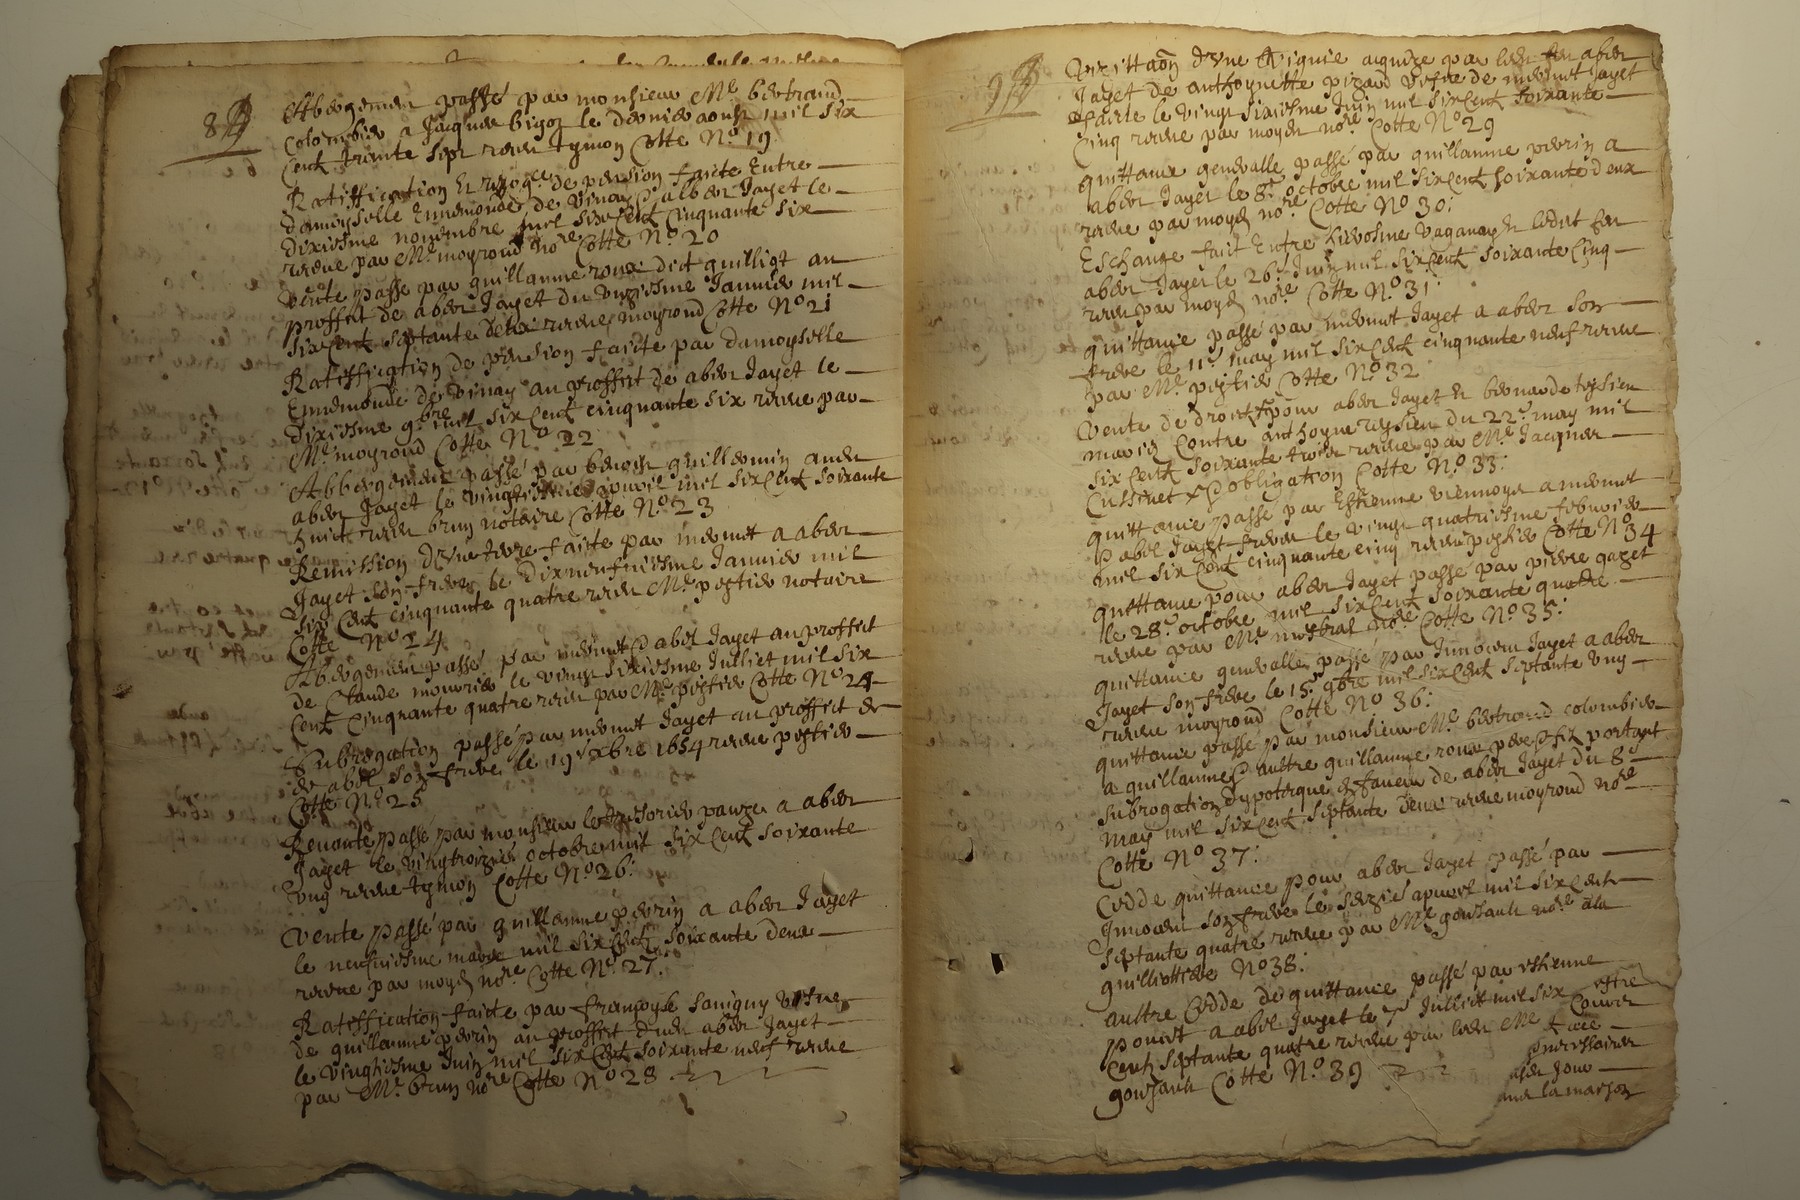 8
Abbergement passé par monsieur Me bertrand
Colombier a Jacques bigoz le dernier aoust mil six
Cent trante sept receu tymon Cotte No 19
Ratiffication de pension faicte Entre
damoyselle Ennemonde de vinay & abel Jayet le
dixiesme novembre mil six Cent Cinquante six
receue par Me moyroud nore Cotte No 20
vente passé par guillaume roux dict guilligt au
proffit de abel Jayet du unziesme Janvier mil
six Cent septante deux receue moyroud Cotte No 21
Ratiffication de pension faicte par damoyselle
Ennemonde de vinay au proffit de abel Jayet le
dixiesme 9bre mil six Cent cinquante six receue par
Me moyroud Cotte No 22
Abbergement passé par benoist guillermin
abel Jayet le vingtiesme apvril mil six Cent soixante
huict receu brun notaire Cotte No 23
Remission d'une terre faicte par a abel
Jayet son frere le dixneufviesme Janvier mil
six Cent cinquante quatre receu Me postier notaire
Cotte No 24
Abbergement passé par & abel Jayet au proffit
de Claude mourier le vingt sixiesme Juilliet mil six
Cent Cinquante quatre receu par Me postier Cotte No 24
Subrogation passé par Jayet au proffit de
de abel son frere le 19 1654 receue postier
Cotte No 25
Revante passé par monsieur le tresorier a abel
Jayet le vingtroizie octobre mil six Cent soixante
ung receue tymon Cotte No 26:
Vente passé par guillaume perrin a abel Jayet
le neufviesme mars mil six Cent soixante deux
receue par moyd nore Cotte No 27
Ratiffication faicte par françoyse savigny vefve
de guillaume perrin au proffit dud abel Jayet
le vingtiesme Juin mil six Cent soixante neuf receue
par Me brun nore Cotte No 28
9
d'une aquize par led feu abel
Jayet de anthoynette pizard vefve de Jayet
le vingt sixiesme Juin mil six Cent soixante
Cinq receue par moyd nore Cotte No 29
quittance generalle passé par guillaume perrin a
abel Jayet le 8e octobre mil six Cent soixante deux
receue par moyd nore Cotte No 30:
Eschange fait Entre hierosme vaganay & ledit feu
abel Jayet le 26e Juin mil six Cent soixante Cinq
receu par moyd nore Cotte No 31:
quittance passé par Jayet a abel son
frere le 11e may mil six Cent cinquante neuf receue
par Me postier Cotte No 32
Vente de droictz pour abel Jayet & bernarde teysieu
mariez Contre anthoyne teysieu du 22e may mil
six Cent soixante trois receue par Me Jacques
Cussinet & obligation Cotte No 33:
quittance passé par Estienne viennoys a
& abel Jayet freres le vingt quatriesme febvrier
mil six Cent cinquante cinq receue postier Cotte No 34
quittance pour abel Jayet passé par pierre gazet
le 28e octobre mil six Cent soixante quatre
receue par Me mistral nore Cotte No 35:
quittance generalle passé par Innocent Jayet a abel
Jayet son frere le 15e 9bre mil six Cent septante ung
receue moyroud Cotte No 36:
quittance passé par monsieur Me bertrand colombier
a guillaume & aultre guillaume roux pere & filz portant
subrogation d'ypoteque En faveur de abel Jayet du 8e
May mil six Cent septante deux receue moyroud nore
Cotte No 37:
Cedde quittance pour abel Jayet passé par
Innocent son frere le sezie apvril mil six Cent
septante quatre receue par Me goussault nore
No 38:
aultre Cedde de quittance passé par Estienne
a abel Jayet le Juillet mil six
Cent septante quatre receue par led Me
goussault Cotte No 39
la maison